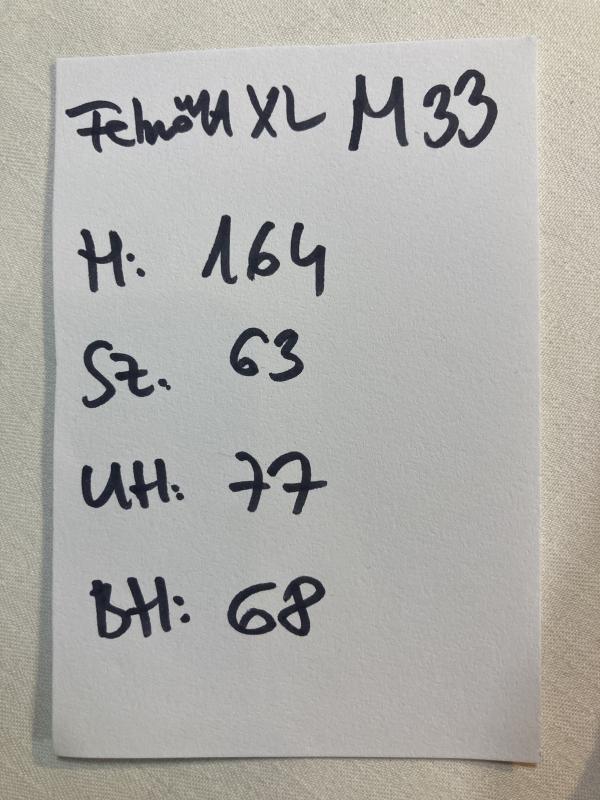 Felnőtt XL M33
H: 164
Sz. 63
UH: 77
BH: 68